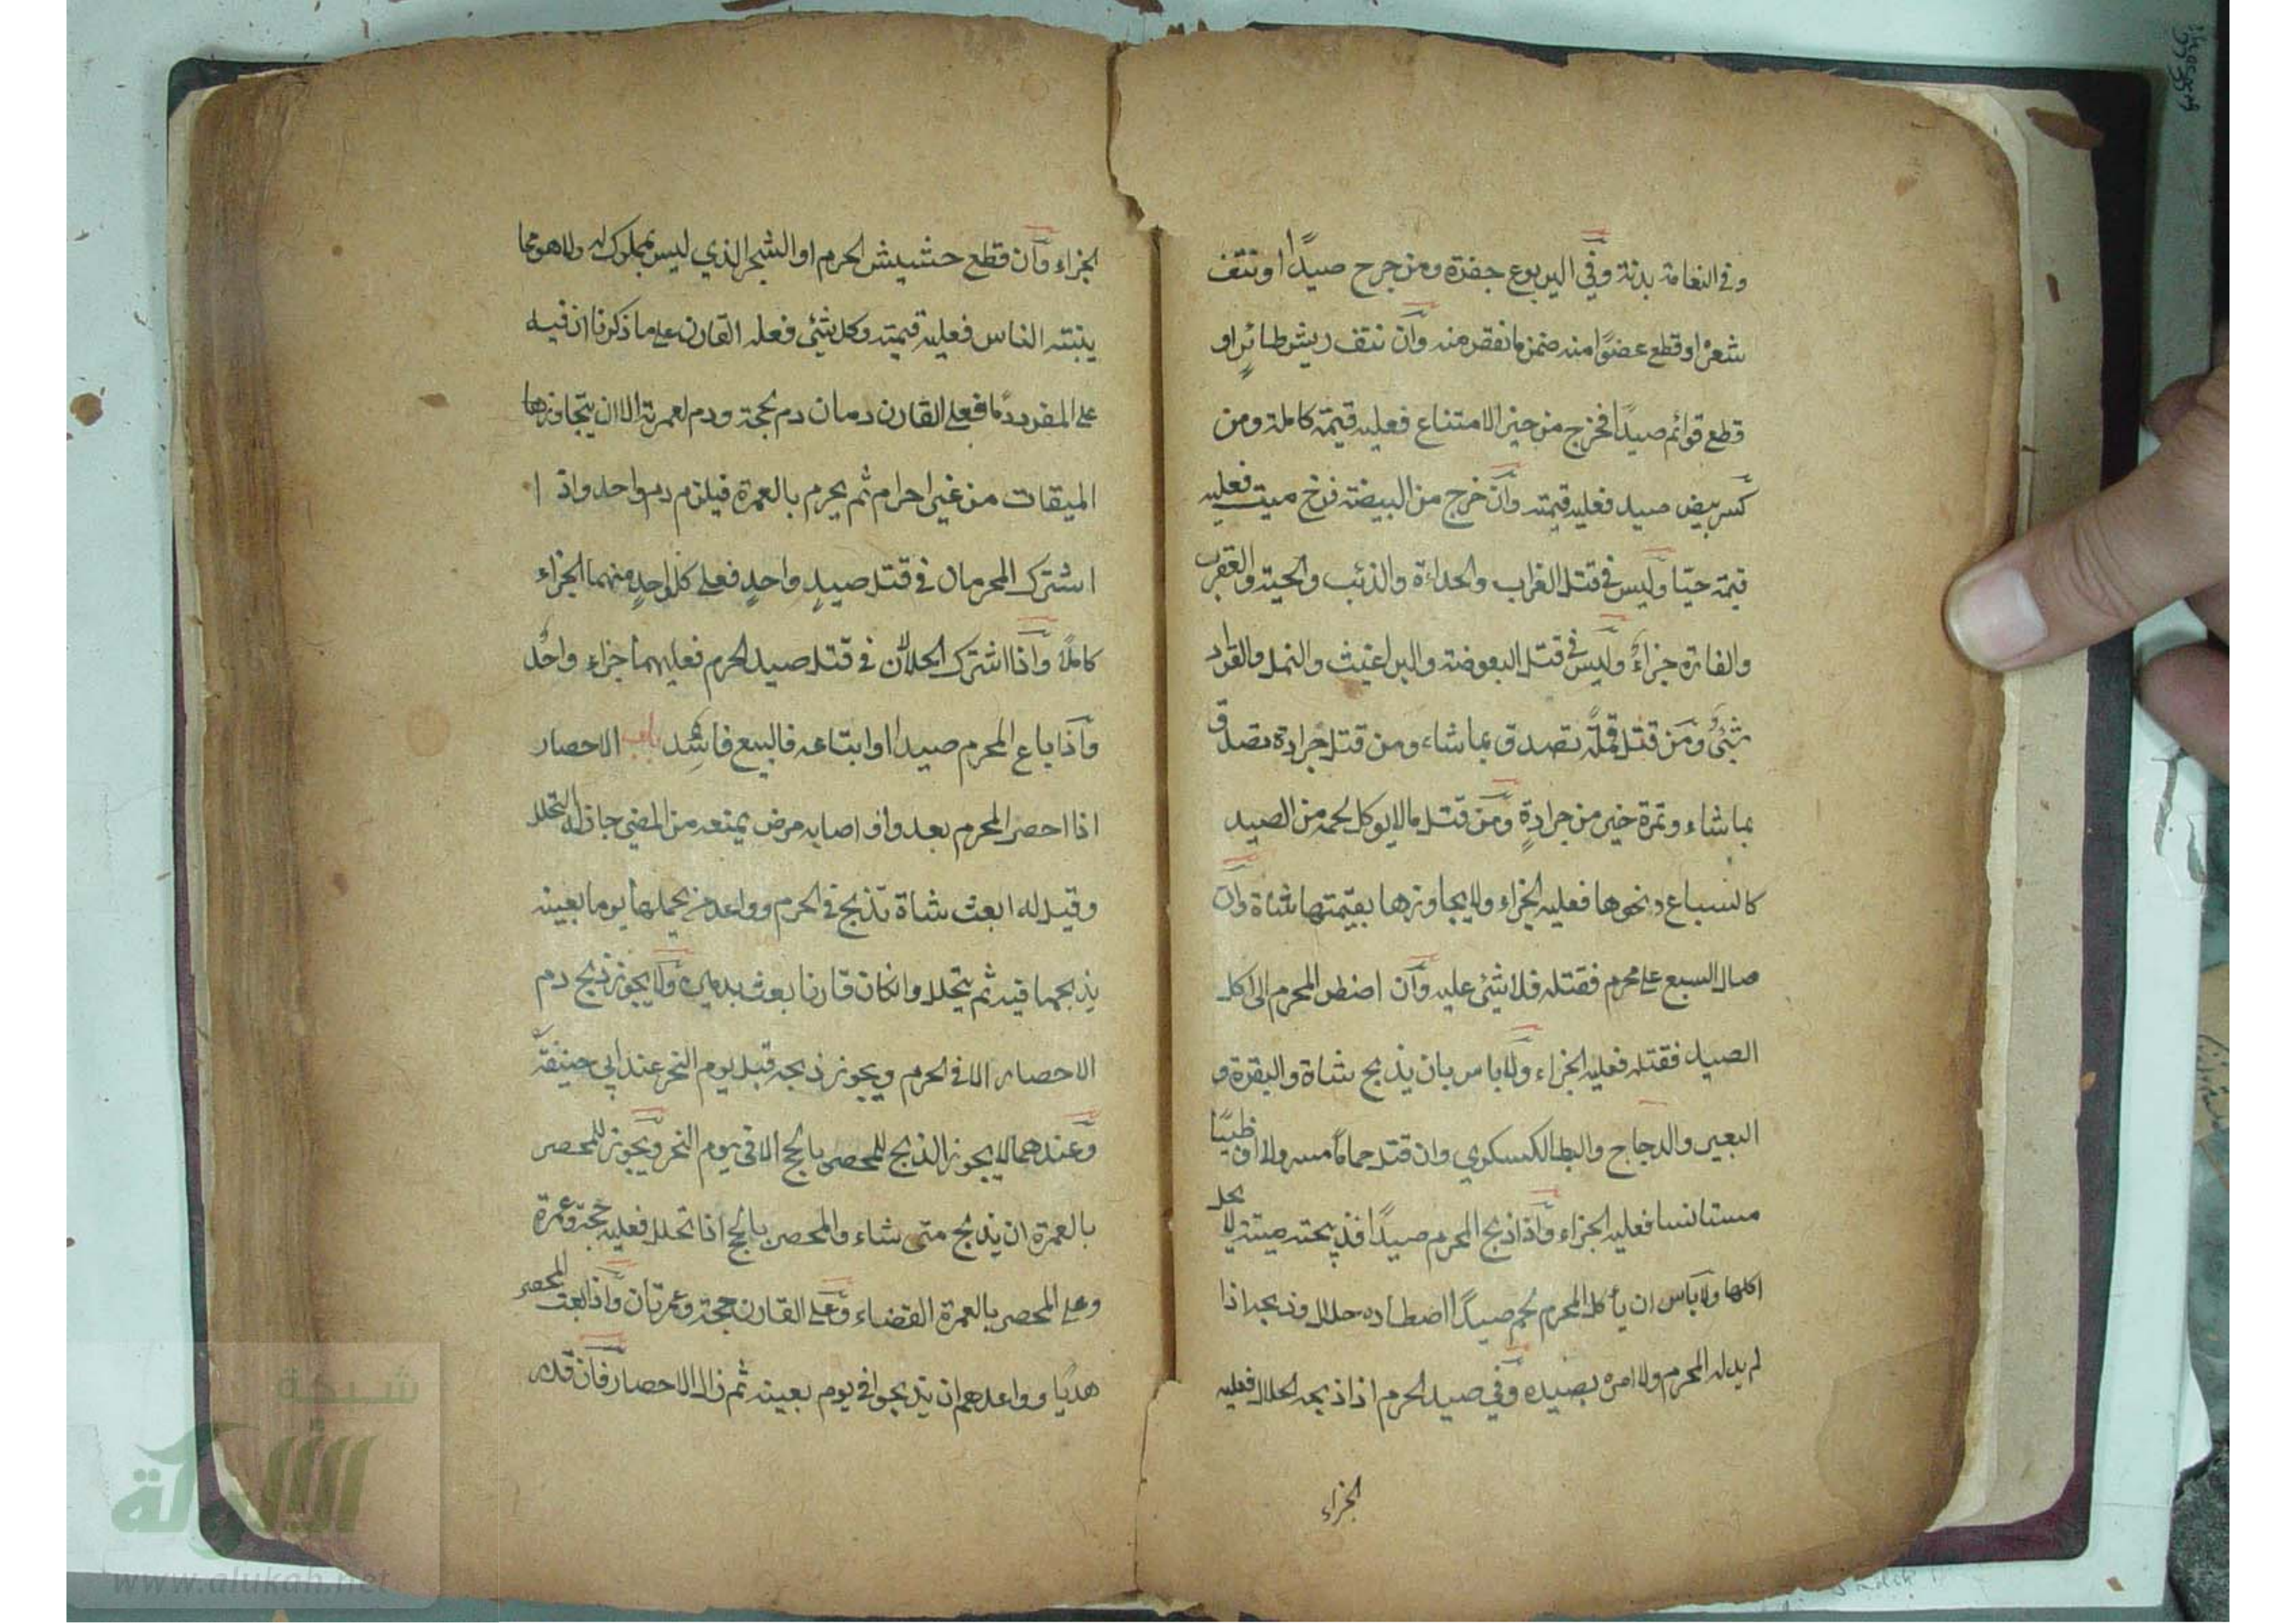 وفي النعامة بدنة وفي اليربوع جفرة ومن جرح صيدًا او نتف
شعره او قطع عضوًا منه ضمن ما نقص منه وان نتف ريش طائرٍ او
قطع قوائم صيدًا فخرج من حيز الامتناع فعليه قيمته كاملة ومن
كسر بيض صيد فعليه قيمته وان خرج من البيضة فرخ ميت فعليه
قيمته حيّا وليس في قتل الغراب والحداءة والذئب والحية والعقرب
والفارة جزاءٌ وليس في قتل البعوضة والبراغيث والنمل والقراد
شئٌ ومن قتل قملةً تصدق بما شاء ومن قتل جرادة تصدق
بما شاء وتمرة خير من جرادةٍ ومن قتل مالا يوكل لحمه من الصيد
كالسباع ونحوها فعليه الجزاء ولا يجاوزها بقيمتها شاة وان
صال السبع على محرم فقتله فلا شئ عليه وان اضطر المحرم الى اكل
الصيد فقتله فعليه الجزاء ولا باس بان يذبح شاة والبقرة و
البعير والدجاج والبط الكسكري وان قتل حمامًا مسرولا او ظبيًا
مستانسا فعليه الجزاء واذا ذبح المحرم صيدًا فذبيحته ميتة لا يحل
اكلها ولا باس ان يأكل المحرم لحم صيدًا اصطاده حلال وذبحه اذا
لم يدله المحرم ولا امره بصيده وفي صيد الحرم اذا ذبحه الحلال فعليه
الجزاء
الجزاء وان قطع حشيش الحرم او الشجر الذي ليس بمملوك له ولا هو مما
ينبته الناس فعليه قيمته وكل شئ فعله القارن على ما ذكرنا ان فيه
على المفرد دمًا فعلى القارن دمان دم لحجة ودم لعمرته الا ان يتجاوزها
الميقات من غير احرام ثم يحرم بالعمرة فيلزم دم واحد واذ ا
اشترك المحرمان في قتل صيدٍ واحدٍ فعلى كل واحدٍ منهما الجزاء
كاملاً واذا اشترك الحلالان في قتل صيد الحرم فعليهما جزاء واحد
واذا باع المحرم صيدا او ابتاعه فالبيع فاسد باب الاحصار
اذا احصر المحرم بعدو او اصابه مرض يمنعه من المضي جاز له التحلل
وقيل له ابعث شاة تذبح في الحرم وواعد من يحملها يوما بعينه
يذبحها فيه ثم يتحلل وان كان قارنا بعث بدمين ولا يجوز ذبح دم
الاحصار الا في الحرم ويجوز ذبحه قبل يوم النحر عند ابي حنيفة
وعندهما لا يجوز الذبح للمحصر بالحج الا في يوم النحر ويجوز للمحصر
بالعمرة ان يذبح متى شاء والمحصر بالحج اذا تحلل فعليه حجة وعمرة
وعلى المحصر بالعمرة القضاء وعلى القارن حجة وعمرتان واذا بعث المحصر
هديًا وواعدهم ان يذبحوا في يوم بعينه ثم زال الاحصار فان قدر
شبكة
الألوكة
www.alukah.net